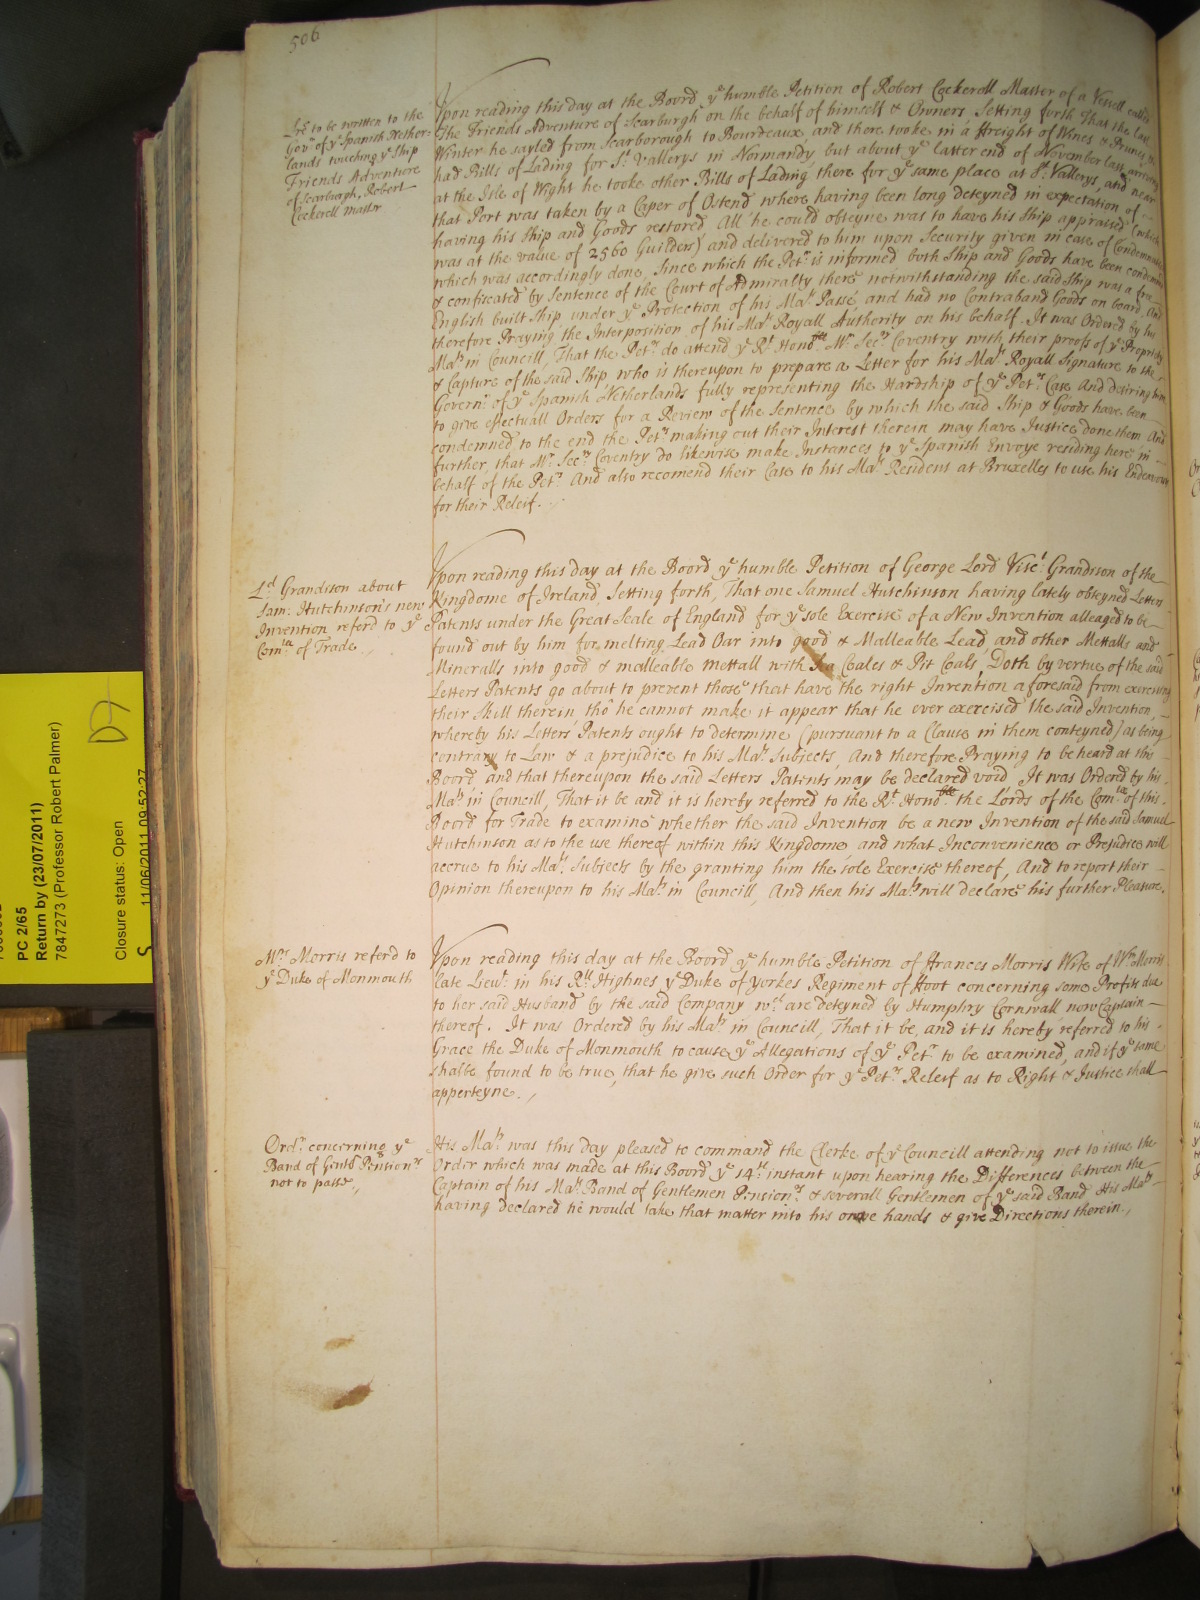 506
Lre to be written to the
Govr of ye Spanish Nether-
lands touching ye Ship
Friends Adventure
of Scarburgh, Robert
Cockerell Master
Vpon reading this day at the Boord ye humble Petition of Robert Cockerell Master of a Vessell called
The Friends Adventure of Scarburgh on the behalf of himself & Owners Setting forth That the last
Winter he sayled from Scarborough to Bourdeaux and there tooke in a ffreight of Wines & Prunes
had Bills of Lading for St Vallerys in Normandy, but about ye latter end of November last arriving
at the Isle of Wight he tooke other Bills of Lading there for ye same place at St Vallerys, and near
that Port was taken by a Caper of Ostend where having been long deteyned in expectation of
having his Ship and Goods restored All he could obteyne was to have his Ship appraised (which
was at the value of 2560 Guilders) and delivered to him upon Security given in case of Condemnation
which was accordingly done, Since which the Petr is informed both Ship and Goods have been condemned
& confiscated by Sentence of the Court of Admiralty there notwithstanding the said Ship was a free
English built Ship under ye Protection of his Mats Passe, and had no Contraband Goods on board, And
therefore Praying the Interposition of his Mats Royall Authority on his behalf. It was Ordered by his
Maty in Councill, That the Petr do attend ye Rt Honoble Mr Secry Coventry with their proofs of ye Propriety
& Capture of the said Ship who is thereupon to prepare a Letter for his Mats Royall Signature to the
Governr of ye Spanish Netherlands fully representing the Hardship of ye Petrs Case And desiring him
to give effectuall Orders for a Review of the Sentence by which the said Ship & Goods have been
condemned to the end the Petrs making out their Interest therein may have Justice done them And
further, that Mr Secry Coventry do likewise make Instances to ye Spanish Envoye residing here in
behalf of the Petrs And also recomend their Case to his Mats Resident at Bruxelles to use his Endeavour
for their Releif.
Ld Grandison about
Sam: Hutchinson's new
Invention referd to ye
Comtee of Trade
Vpon reading this day at the Boord ye humble Petition of George Lord Visct Grandison of the
Kingdome of Ireland, Setting forth, That one Samuel Hutchinson having lately obteyned Letters
Patents under the Great Seale of England for ye sole Exercise of a New Invention alleaged to be
found out by him for melting Lead Oar into good & Malleable Lead, and other Mettalls and
Mineralls into good & malleable mettall with Sea Coales & Pit Coals Doth by vertue of the said
Letters Patents go about to prevent those that have the right Invention aforesaid from exercising
their Skill therein tho he cannot make it appear that he ever exercised the said Invention,
whereby his Letters Patents ought to determine (pursuant to a Clause in them conteyned) as being
contrary to Law & a prejudice to his Mats Subjects, And therefore Praying to be heard at this
Boord and that thereupon the said Letters Patents may be declared void It was Ordered by his
Maty in Councill, That it be and it is hereby referred to the Rt Honoble the Lords of the Comtee of this
Boord for Trade to examine whether the said Invention be a new Invention of the said Samuel
Hutchinson as to the use thereof within this Kingdome and what Inconvenience or Prejudice will
accrue to his Mats Subjects by the granting him the sole Exercise thereof, And to report their
Opinion thereupon to his Maty in Councill, And then his Maty will declare his further Pleasure.
Mrs Morris referd to
ye Duke of Monmouth
Vpon reading this day at the Boord ye humble Petition of ffrances Morris Wife of Wm Morris
late Lieut in his Rll Highnes ye Duke of Yorkes Regiment of ffoot concerning some Profits due
to her said Husband by the said Company wch are deteyned by Humphry Cornwall now Captain
thereof. It was Ordered by his Maty in Councill, That it be, and it is hereby referred to his
Grace the Duke of Monmouth to cause ye Allegations of ye Petr to be examined, and if ye same
shalbe found to be true, that he give such Order for ye Petrs Releif as to Right & Justice shall
apperteyne.
Ordr concerning ye
Band of Gentl Pensionrs
not to passe,
His Maty was this day pleased to command the Clerke of ye Councill attending not to issue the
Order which was made at this Boord ye 14th instant upon hearing the Differences between the
Captain of his Mats Band of Gentlemen Pensionrs & severall Gentlemen of ye said Band His Maty
having declared he would take that matter into his owne hands & give Directions therein.
PC 2/65
Return by (23/07/2011)
7847273 (Professor Robert Palmer)
Closure status: Open
S 11/06/2011 09:52:27
D7